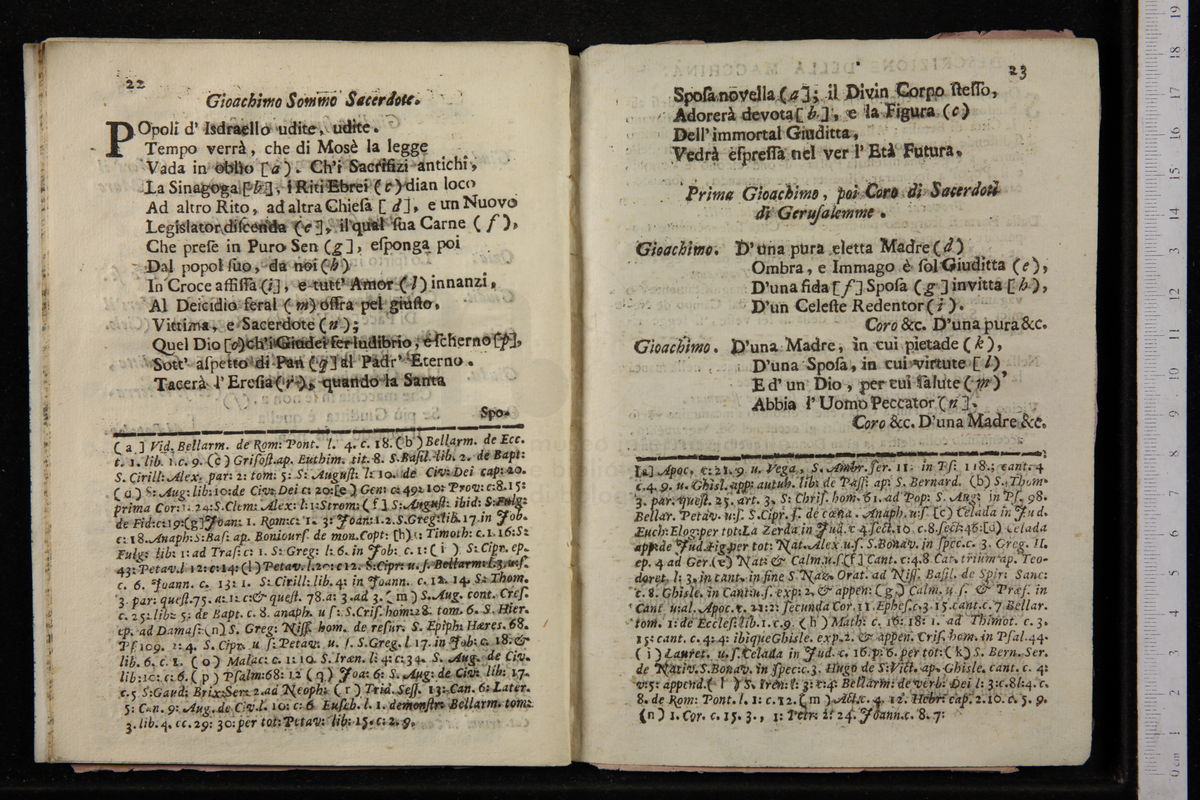 22
Gioachimo Sommo Sacerdote.
POpoli d' Isdraello udite, udite.
Tempo verrà, che di Mosè la legge
Vada in oblìo [a). Ch'i Sacrifizi antichi,
La Sinagoga [b], i Riti Ebrei (c) dian loco
Ad altro Rito, ad altra Chiesa [d], e un Nuovo
Legislator discenda (e], il qual sua Carne (f),
Che prese in Puro Sen (g], esponga poi
Dal popol suo, da noi (h)
In Croce affissa (i], e tutt' Amor (l) innanzi,
Al Deicidio feral (m) offra pel giusto,
Vittima, e Sacerdote (n);
Quel Dio [o) ch'i Giudei fer ludibrio, e scherno [p],
Sott' aspetto di Pan (q] al Padr' Eterno.
Tacerà l'Eresia (r), quando la Santa
Spo-
(a] Vid. Bellarm. de Rom: Pont. l. 4. c. 18. (b) Bellarm. de Ecc.
t. 1. lib. 1. c. 9. (c) Grisost. ap. Euthim. tit. 8. S. Basil. lib. 2. de Bapt:
S. Cirill: Alex. par: 2: tom: 5: S: August: l: 10. de Civ: Dei cap: 20.
(d) S: Aug: lib: 10: de Civ: Dei c: 20: [e) Gen: c: 49: 10: Prov: c: 8. 15:
prima Cor: 1. 24: S. Clem: Alex: l: 1: Strom: (f] S: August: ibid: S. Fulg:
de Fid: c: 19: (g] Joan: 1. Rom: c: 1. 3: Joan: 1. 2. S. Greg: lib. 17. in Job.
c: 18. Anaph: S: Bas: ap. Boniours de mon. Copt: [h) 1: Timoth: c. 1. 16: S:
Fulg: lib: 1: ad Tras: c: 1. S: Greg: l: 6. in Job: c. 1: (i) S: Cipr. ep.
43: Petav. l 12: c: 14: (l) Petav. l. 2: c: 12. S: Cipr: u. s. Bellarm: l. 3. u. s.
c. 6. Joann. c. 13: 1. S: Cirill: lib. 4: in Joann. c. 12. 14. S: Thom.
3. par: quest. 75. a: 1: c: & quest. 78. a: 3. ad 3. (m) S. Aug. cont. Cres.
c. 25: lib: 5: de Bapt. c. 8. anaph. u s: S. Cris. hom: 28: tom. 6. S. Hier.
ep. ad Damas: (n] S. Greg: Niss. hom. de resur: S. Epiph: Hæres. 68.
Ps. 109. 1: 4. S. Cipr. u. s: Petav: u. s. S. Greg. l 17. in Job: c. 18: &
lib. 6. c. 1. (o) Malac: c. 1: 10. S. Iræn. l: 4: c: 34. S. Aug. de Civ.
lib: 10: c: 6. (p) Psalm: 68: 12 (q) Joa: 6: S. Aug: de Civ: lib: 17.
c. 5 S: Gaud: Brix: Ser: 2. ad Neoph: (r) Trid. Sess. 13: Can. 6: Later.
5: Can. 9: Aug. de Civ. l. 10: c: 6 Euseb. l. 1. demonstr: Bellarm. tom:
3. lib. 4. cc. 29: 30: per tot: Petav: lib: 15. c: 2. 9.
23
Sposa novella (a]; il Divin Corpo stesso,
Adorerà devota [b], e la Figura (c)
Dell' immortal Giuditta,
Vedrà espressa nel ver l'Età Futura.
Prima Gioachimo, poi Coro di Sacerdoti
di Gerusalemme.
Gioachimo. D'una pura eletta Madre (d)
Ombra, e Immago è sol Giuditta (e),
D'una fida [f] Sposa (g] invitta [h),
D'un Celeste Redentor (i).
Coro &c. D'una pura &c.
Gioachimo. D'una Madre, in cui pietade (k),
D'una Sposa, in cui virtute [l)
E d' un Dio, per cui salute (m)
Abbia l'Uomo Peccator (n].
Coro &c. D'una Madre &c.
[a] Apoc. c: 21. 9. u. Vega, S. Ambr. ser. 11: in Ps: 118.; cant. 4
c. 4. 9. u. Ghisl. app: autuh. lib: de Pass: ap: S. Bernard. (b) S. Thom.
3. par. quest. 25. art. 3. S: Chris. hom. 61. ad Pop: S. Aug: in Ps. 98.
Bellar. Petav. u: s. S. Cipr. s. de cœna. Anaph. u: s. [c) Celada in Jud.
Euch: Elog: per tot: La Zerda in Jud. c 4. sect. 10. c. 8. sect: 46: [d) Celada
app: de Jud. Fig. per tot: Nat. Alex u. s. S. Bonav. in spec. c. 3. Greg. II.
ep. 4 ad Ger. (e) Nat: & Calm. u. s (f] Cant. c: 4. 8 Cat. trium ap. Teo-
doret. l: 3. in cant. in fine S Naz. Orat. ad Niss. Basil. de Spir: Sanc:
c. 8. Ghisle. in Cant: u. s. exp: 2. & appen: (g) Calm. u. s. & Præf. in
Cant u: al. Apoc. c. 21: 2: secunda Cor. 11. Ephes. c. 3. 15. cant. c. 7 Bellar.
tom. 1: de Eccles: lib. 1. c. 9. (h) Math: c. 16: 18: 1. ad Thimot. c. 3.
15: cant. c. 4: 4: ibique Ghisle. exp. 2. & appen. Cris. hom. in Psal. 44.
(i) Lauret. u. s. Celada in Jud. c. 16. p: 6. per tot: (k) S. Bern. Ser.
de Nativ. S. Bonav. in spec: c. 3. Hugo de S: Vict. ap. Ghisle. cant. c. 4:
v: 5: append. (l) S. Iren: l: 3: c: 4: Bellarm: de verb: Dei l: 3: c. 8 l: 4. c.
8. de Rom: Pont. l. 1: c. 12. (m) Act. c. 4. 12. Hebr: cap. 2. 10. c. 5. 9.
(n) 1. Cor. c. 15. 3., 1: Petr: 2: 24. Joann. c. 8. 7: